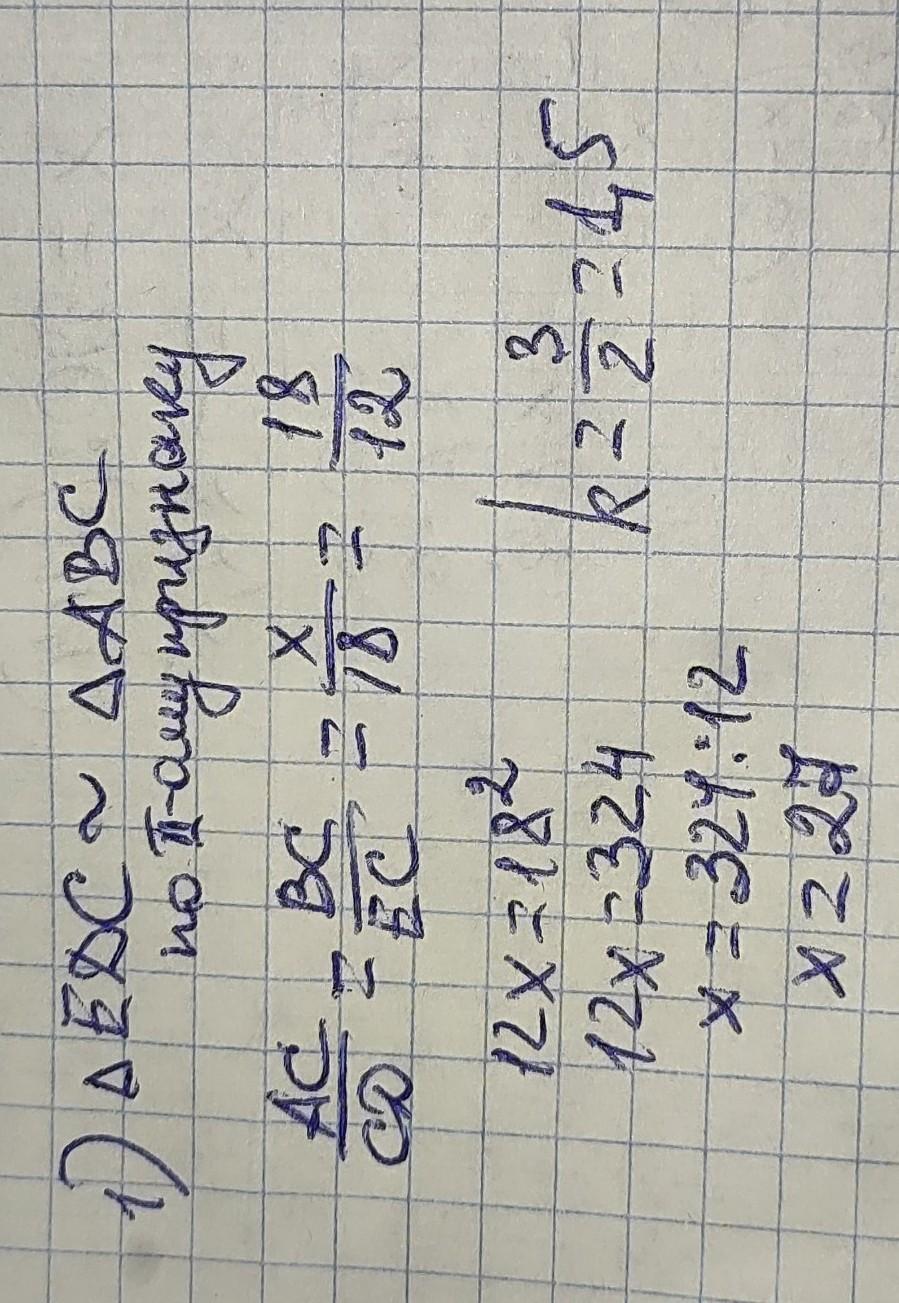 1) ΔEDC ~ ΔABC
по II-ому признаку
AC/CD = BC/EC = x/18 = 18/12
12x = 18²
12x = 324 k = 3/2 = 1,5
x = 324 : 12
x = 27